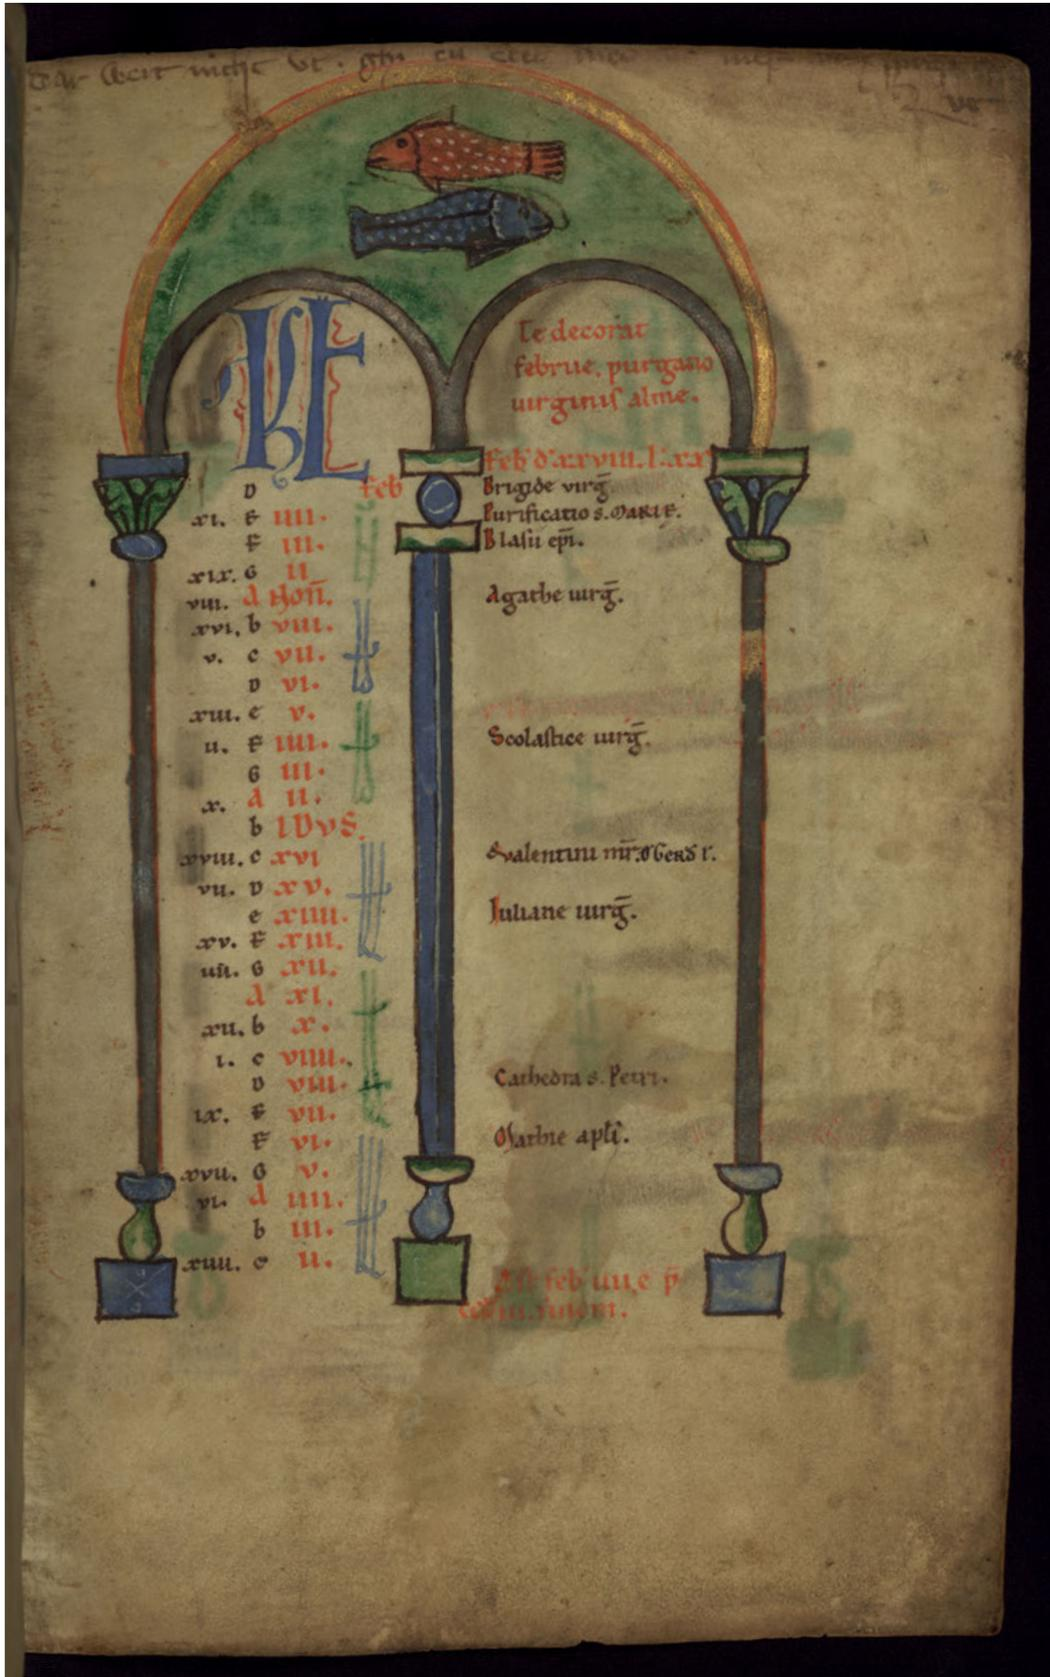 KL
Te decorat
februe, purgatio
uirginis alme.
feb' d' xxviii. l' xx
D feb Brigide virg̅
xi. E iiii. Purificatio s. MARIE.
F iii. Blasii ep̅i.
xix. G ii
viii. A Non̅. Agathe uirg̅.
xvi. b viii.
v. c vii.
D vi.
xiii. e v.
ii. F iiii. Scolastice uirg̅.
G iii.
x. A ii.
b IDVS.
xviii. c xvi Valentini mr̅.
vii. D xv.
e xiiii. Iuliane uirg̅.
xv. F xiii.
iiii. G xii.
A xi.
xii. b x.
i. c viiii.
D viii. Cathedra s. Petri.
ix. E vii.
F vi. Mathie apl̅i.
xvii. G v.
vi. A iiii.
b iii.
xiiii. c ii.
feb'